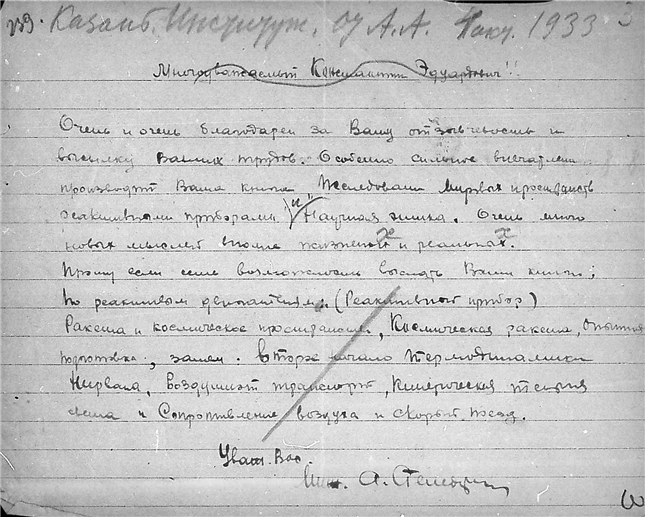 Казанс. Институт. А.А. 4 окт. 1933
Многоуважаемый Константин Эдуардович!!
Очень и очень благодарен за Вашу отзывчивость и
высылку Ваших трудов. Особенно сильное впечатлен
производят Ваша книга „Исследовани мировых пространств
реактивными приборами" и Научная этика. Очень много
новых мыслей вполне жизненых и реальных.
Прошу если есть возможность выслать Ваши книги;
По реактивым двигателям. (Реактивный прибор)
Ракета и космическое пространсиво, Космическая ракета, Опытная
подготовка, затем. Второе начало термодинамики
Нирвана, Воздушный транспорт, Кинетическая теория
света и Сопротивление воздуха и скорый поезд.
Уваж. Вас.
А.